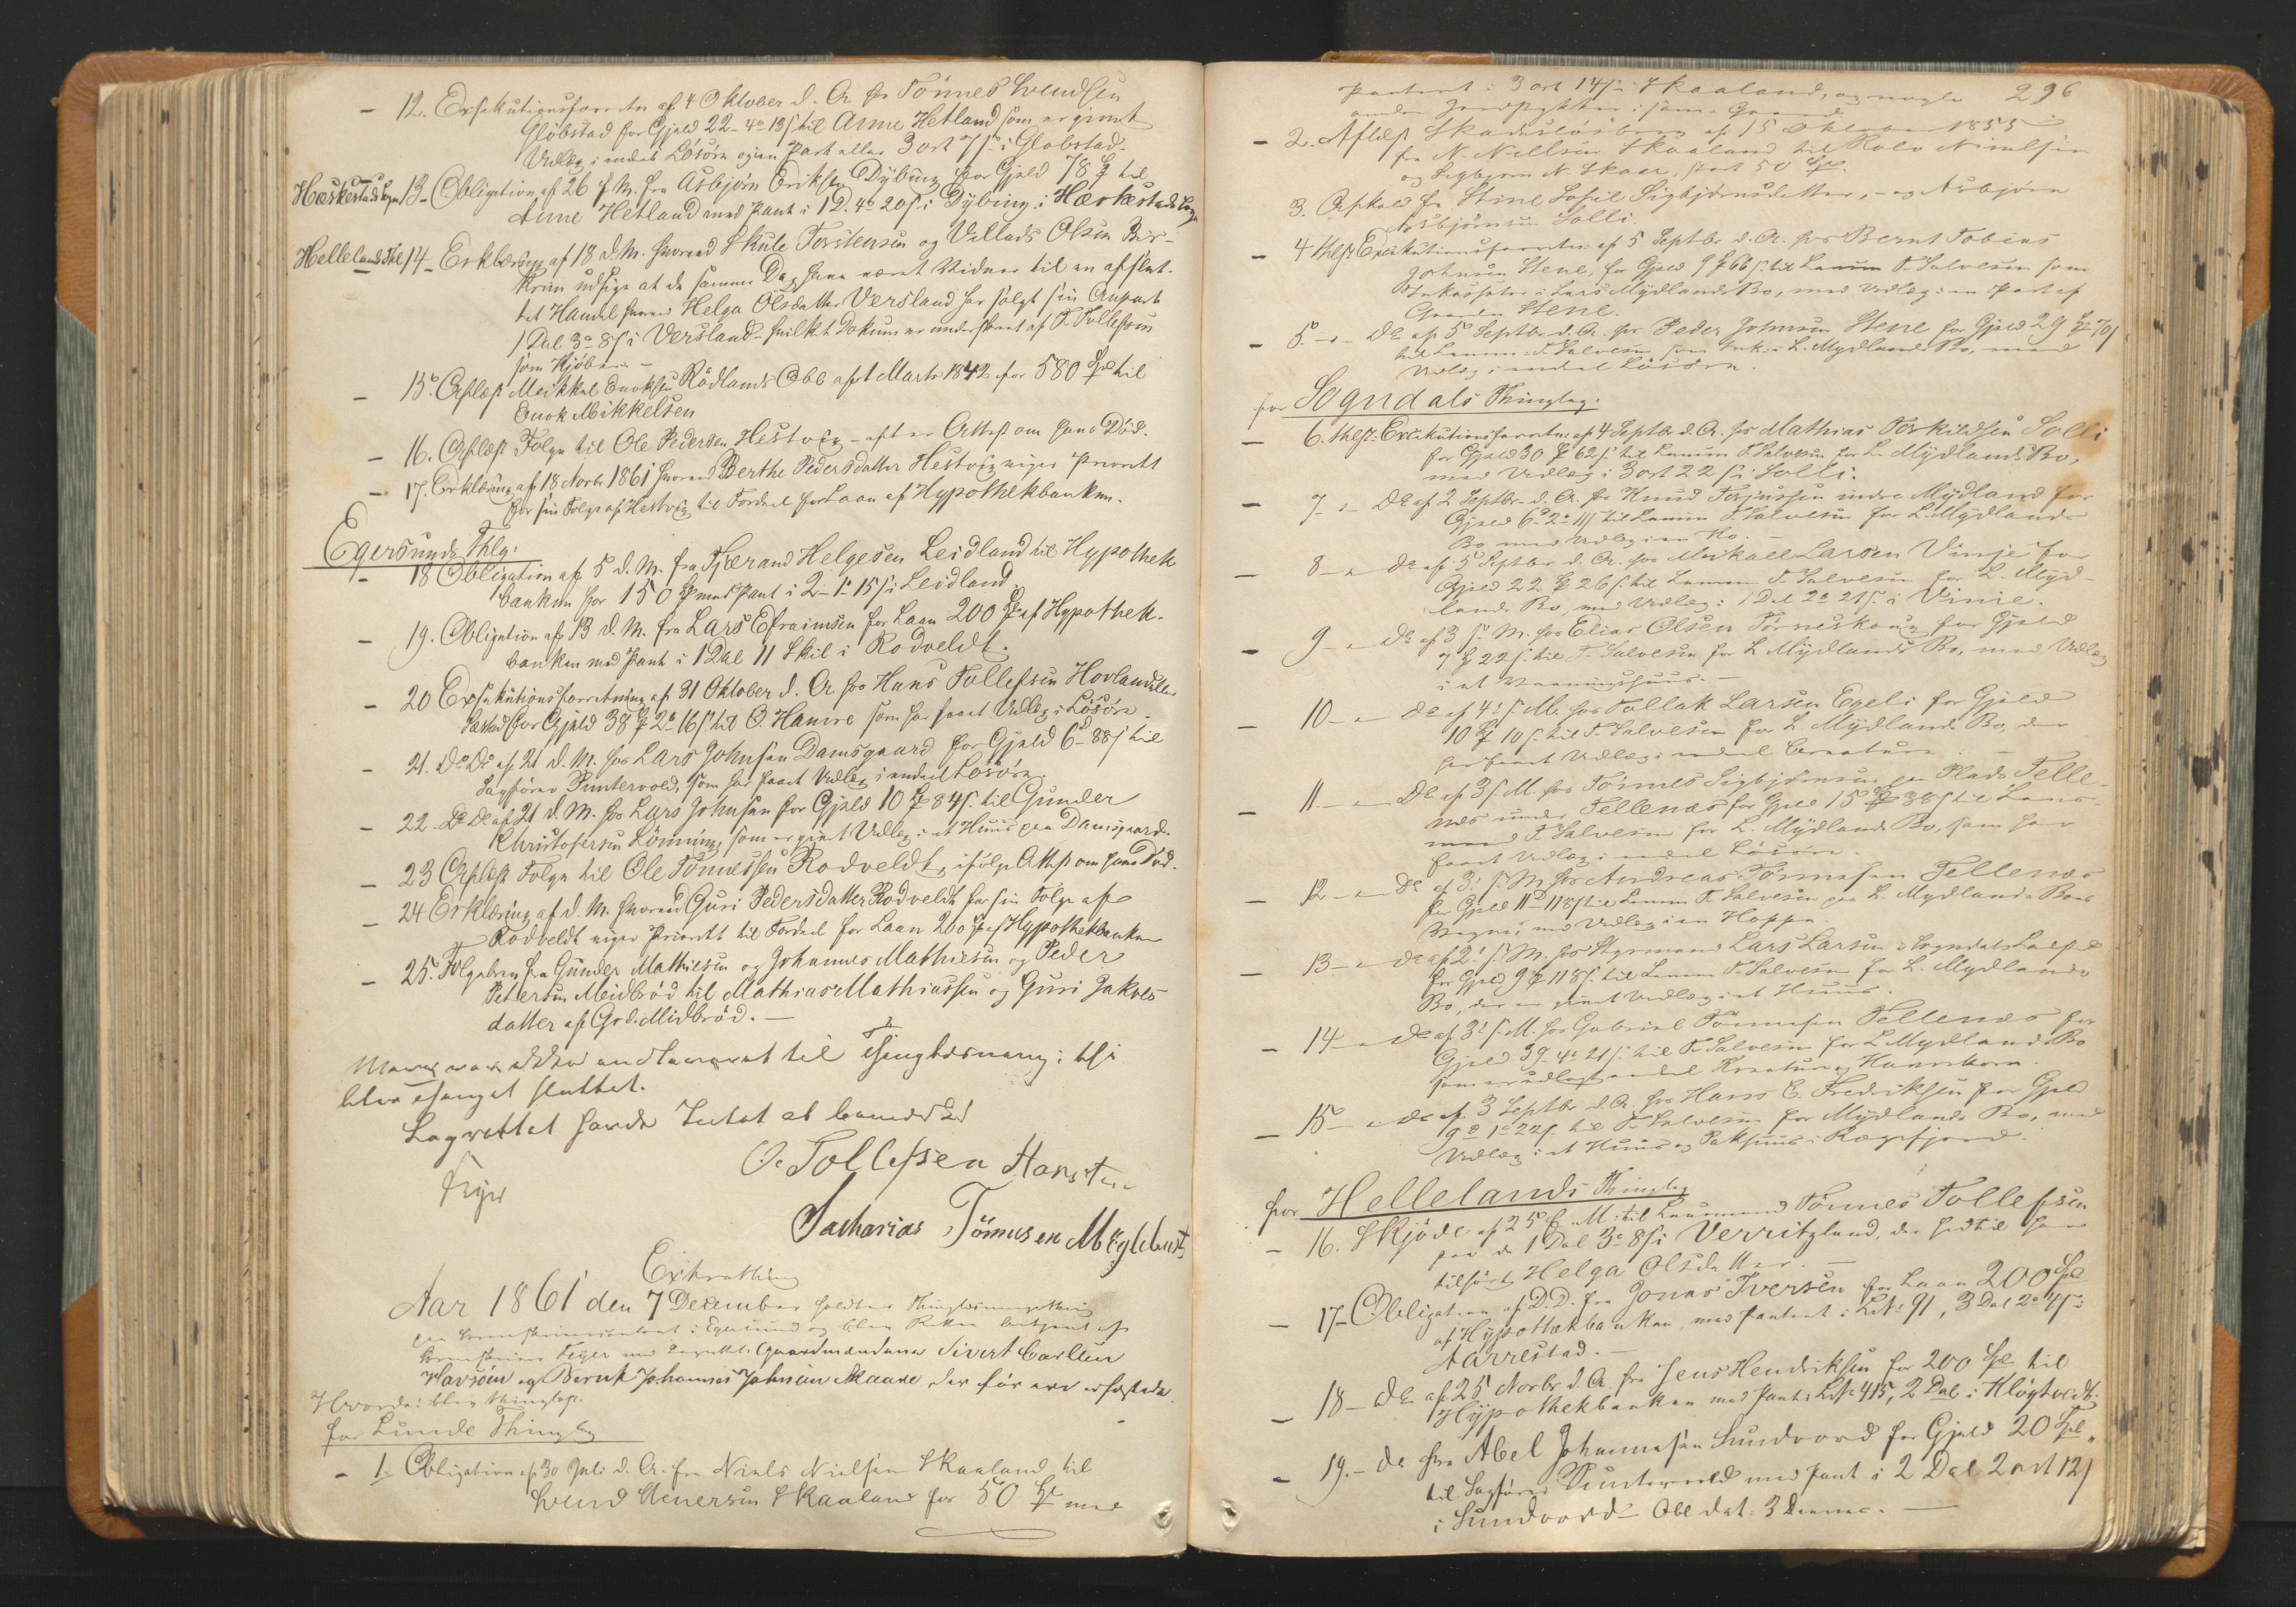 - 12. Exsekutionsforretn af 4 Oktober d. A. hos Tönnes Svendsen
Glöbstad for Gjæld 22 - 4 o 13 s til Anne Hetland som er givet
Udlæg i endeel Lösöre og en Part eller 3 ort 7 s i Globstad.
Heskestads Sogn 13 - Obligation af 26 f. M. fra Asbjörn Eriksen Dybing for Gjæld 78 Spd til
Anne Hetland med Pant i 1 D. 4 o 20 s i Dybing i Heskestads Sogn
Hellelands Thl 14 - Erklæring af 18 d. M. hvorved Skule Torstensen og Villads Olsen Bir-
krim udsige at de samme Dag have været Vidner til en afslut-
tet Handel hvorved Helga Olsdatter Versland har solgt sin Anpart
1 Dal 3 o 8 s i Versland - hvilket Dokum er underskrevet af T. Tollefsen
som Kjöber. -
- 15. Aflæst Mikkel Enoksen Rödlands Obl af 1 Marts 1842 for 580 Spd til
Enok Mikkelsen
- 16. Aflæst Folge til Ole Pedersen Hestvig - efter Attest om hans Död.
- 17. Erklæring af 18 Novbr 1861 hvorved Berthe Pedersdatter Hestvig viger Prioritet
for sin Folge af Hestvig til Fordeel for Laan af Hypothekbanken.
Egersunds Thlg:
- 18 Obligation af 5 d. M. fra Tjærand Helgesen Leidland til Hypothek
banken for 150 Spd med Pant i 2 - 1 o 15 s i Leidland
- 19. Obligation af 13 d. M. fra Lars Efraimsen for Laan 200 Spd af Hypothek-
banken med Pant i 1 Dal 11 Skil i Rodveldt.
- 20 Exsekutionsforretning af 31 Oktober d. A. hos Hans Tollefsen Hovland
for Gjæld 38 Spd 2 o 16 s til O. Hamre som har faaet Udlæg i Lösöre
- 21. Do Do af 21 d. M. hos Lars Johnsen Damsgaard for Gjæld 6 - 88 s til
Sagförer Puntervold, som har faaet Udlæg i endeel Lösöre.
- 22. Do Do af 21 d. M. hos Lars Johnsen for Gjæld 10 Spd 84 s. til Gunder
Christofersen Lönning, som er givet Udlæg i et Huus paa Damsgaard.
- 23 Aflæst Folge til Ole Tönnessen Rodveldt, ifölge Attest om hans Död.
- 24 Erklæring af d. M. hvorved Guri Pedersdatter Rodveldt for sin Folge af
Rodveldt viger Prioritet til Fordeel for Laan 200 Spd af Hypothekbanken
- 25. Folgebrev fra Gunder Mathiesen og Johannes Mathiesen og Peder
Petersen Meidbröd til Mathias Mathiassen og Guri Jakobs
datter af Grd. Midbröd. -
til Thinglæsning; thi
blev Thinget sluttet.
Lagrettet havde
Feyer
O. Tollefsen
Zacharias Tönnesen Möglebust
Extrathing
Aar 1861 den 7 December holdtes Thinglæsningsthing
paa Sorenskrivercontoret i Egersund og blev Retten betjent af
Sorenskriver Feyer med Lagrettet: Gaardmændene Sivert Carlsen
Havsöen og Bernt Johannes Johnsen Skaare der för ere
Hvorda: blev thinglæst.
for Lunde Thinglag
- 1. Obligation af 30 Juli d. A. fra Niels Nielsen Skaaland til
Svend Skaaland for 50 Spd med
296
Panteret i 3 ort 14 s i Skaaland, og nogle
andre i samme Gaard.
- 2. Aflæst Skadeslösbrev af 15 Oktober 1855
fra N. Nillsen Skaaland til Rolv
og Sigbjörn N. Skaar, stort 50 Spd.
3. Afkald fra Stine Sofie Sigbjörnsdatter, - og Asbjörn
Asbjörnsen Solli
- 4 thlst Exsekutionsforretn. af 5 Septbr d. A. hos Bernt Tobias
Johnsen Stene, for Gjæld 9 Spd 66 s. til Lensm T. Salvesen som
Inkassator i Lars Mydlands Bo, med Udlæg i en Part af
Gaarden Stene.
- 5. - Do af 5 Septbr d. A. hos Peder Johnsen Stene for Gjæld 29 Spd 70 s
til Lensm: T. Salvesen som Ink. i L. Mydlands Bo, med
Udlæg i endeel Lösöre.
for Sogndals Thinglag:
- 6. thlst: Exsekutionsforretn. af 4 Septbr d. A. hos Mathias Torkildsen Solli
for Gjæld 30 Spd 62 s til Lensm T. Salvesen for L. Mydlands Bo,
med Udlæg i 3 ort 22 s i Solli.
- 7 - Do af 2 Septbr. d. A. hos Knud Torjussen indre Mydland for
Gjæld 6 - 2 o 11 s til Lensm T. Salvesen for L. Mydlands
Bo med Udlæg i en Ko. -
- 8 - Do af 5 Septbr d. A. hos Mikael Larsen Vinje for
Gjæld 22 Spd 26 s. til Lensm T. Salvesen for L. Myd-
lands Bo, med Udlæg i 1 Dal 2 o 21 s. i Vinie.
- 9 - Do af 3 f. M. hos Elias Olsen for Gjæld
7 Spd 22 s. til T. Salvesen for L Mydlands Bo, med Udlæg
i et Vaaningshuus. -
- 10 - Do af 4 f. M. hos Tollak Larsen Egeli for Gjæld
10 Spd 10 s. til T. Salvesen for L Mydlands Bo, der
har faaet Udlæg i endeel Creature
- 11. - Do af 3 f. M. hos Tönnes Sigbjörnsen paa Plads Telle-
næs under Tellenæs for Gjæld 15 Spd 38 s til Lens-
mand T. Salvesen for L. Mydlands Bo, som har
faaet Udlæg i endeel Lösöre
- 12 - Do af 3 f. M. hos Andreas Tönnesen Tellenæs
for Gjæld 11 - 118 s til Lensm T. Salvesen paa L. Mydlands Boes
Vegne, med Udlæg i en Hoppe.
- 13 - Do af 2 f. M. hos Styrmand Lars Larsen i Sogndals
for Gjæld 9 Spd 118 s. til Lensm T. Salvesen for L. Mydlands
Bo, der er givet Udlæg i et Huus.
- 14 - Do af 3 f. M. hos Gabriel Tönnesen Tellenæs for
Gjæld 39 - 4 o 21 s. til T. Salvesen for L. Mydlands Bo
som er udlagt endeel Kreature og
- 15 - Do af 3 Septbr d. A. hos Hans E. Fredriksen for Gjæld
9 - 1 o 22 s. til T. Salvesen for Mydlands Bo, med
Udlæg i et Huus og Pakhuus i Rægefjord.
for Hellelands Thinglag
- 16. Skjöde af 25 f. M. til Lensmand Tönnes Tollefsen
paa de 1 Dal 3 o 8 s i Verritzland, der hidtil har
tilhört Helga Olsdatter. -
- 17 - Obligation af D. D. fra Jonas Iversen for Laan 200 Spd
af Hypothekbanken, med Panteret i Lit: 91, 3 Dal 2 o 4 s i
Aarrestad. -
- 18 - Do af 25 Novbr d. A. fra Jens Hendriksen for 200 Spd til
Hypothekbanken med Pant i Lit: 415, 2 Dal i Klögtvedt.
- 19. - do fra Abel Johannesen Sundvord for Gjæld 20 Spd
til Sagförer Puntervold med Pant i 2 Dal 2 ort 12 s
i Sundvord - Obl dat: 3 -